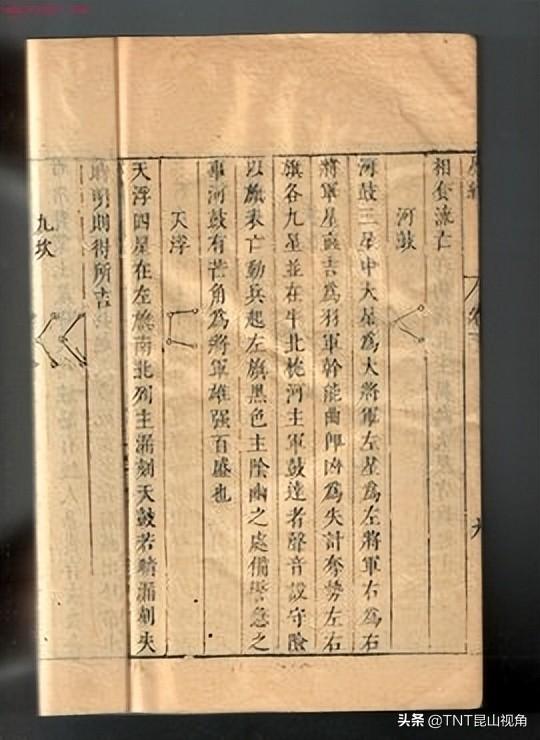 相食流亡
河鼓
河鼓三星中大星為大將軍左星為左將軍右為右
將軍星直吉為羽軍幹能曲即凶為失計奪勢左右
旗各九星並在牛北枕河主軍鼓達者聲音設守險
以旗表亡動兵起左旗黑色主陰幽之處備警急之
事河鼓有芒角為將軍雄强百盛也
天浮
天浮四星在左旗南北列主漏刻天鼓若暗漏刻失
明則得所吉
九坎
头条 @TNT昆山视角